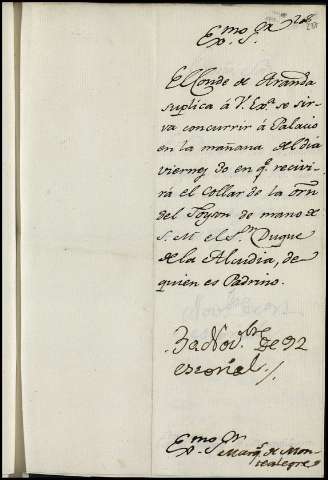 Ex.mo S.or
El Conde de Aranda
suplica á V. Ex.a se sir-
va concurrir á Palacio
en la mañana del dia
viernes 30 en q.e recivi-
rá el Collar de la orn
del Toyson de mano de
S. M. el S.or Duque
de la Alcudia, de
quien es Padrino.
3a Nov.bre de 92
escorial
Ex.mo S.or Marq.s de Mon-
tealegre